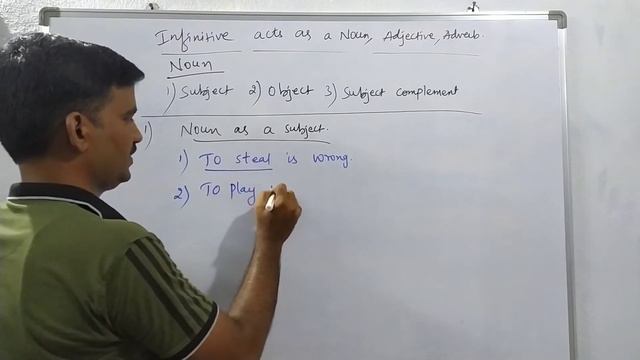 Infinitive acts as a Noun, Adjective, Adverb.
Noun
1) Subject 2) Object 3) Subject complement
1) Noun as a subject.
1) TO steal is wrong.
2) TO Play